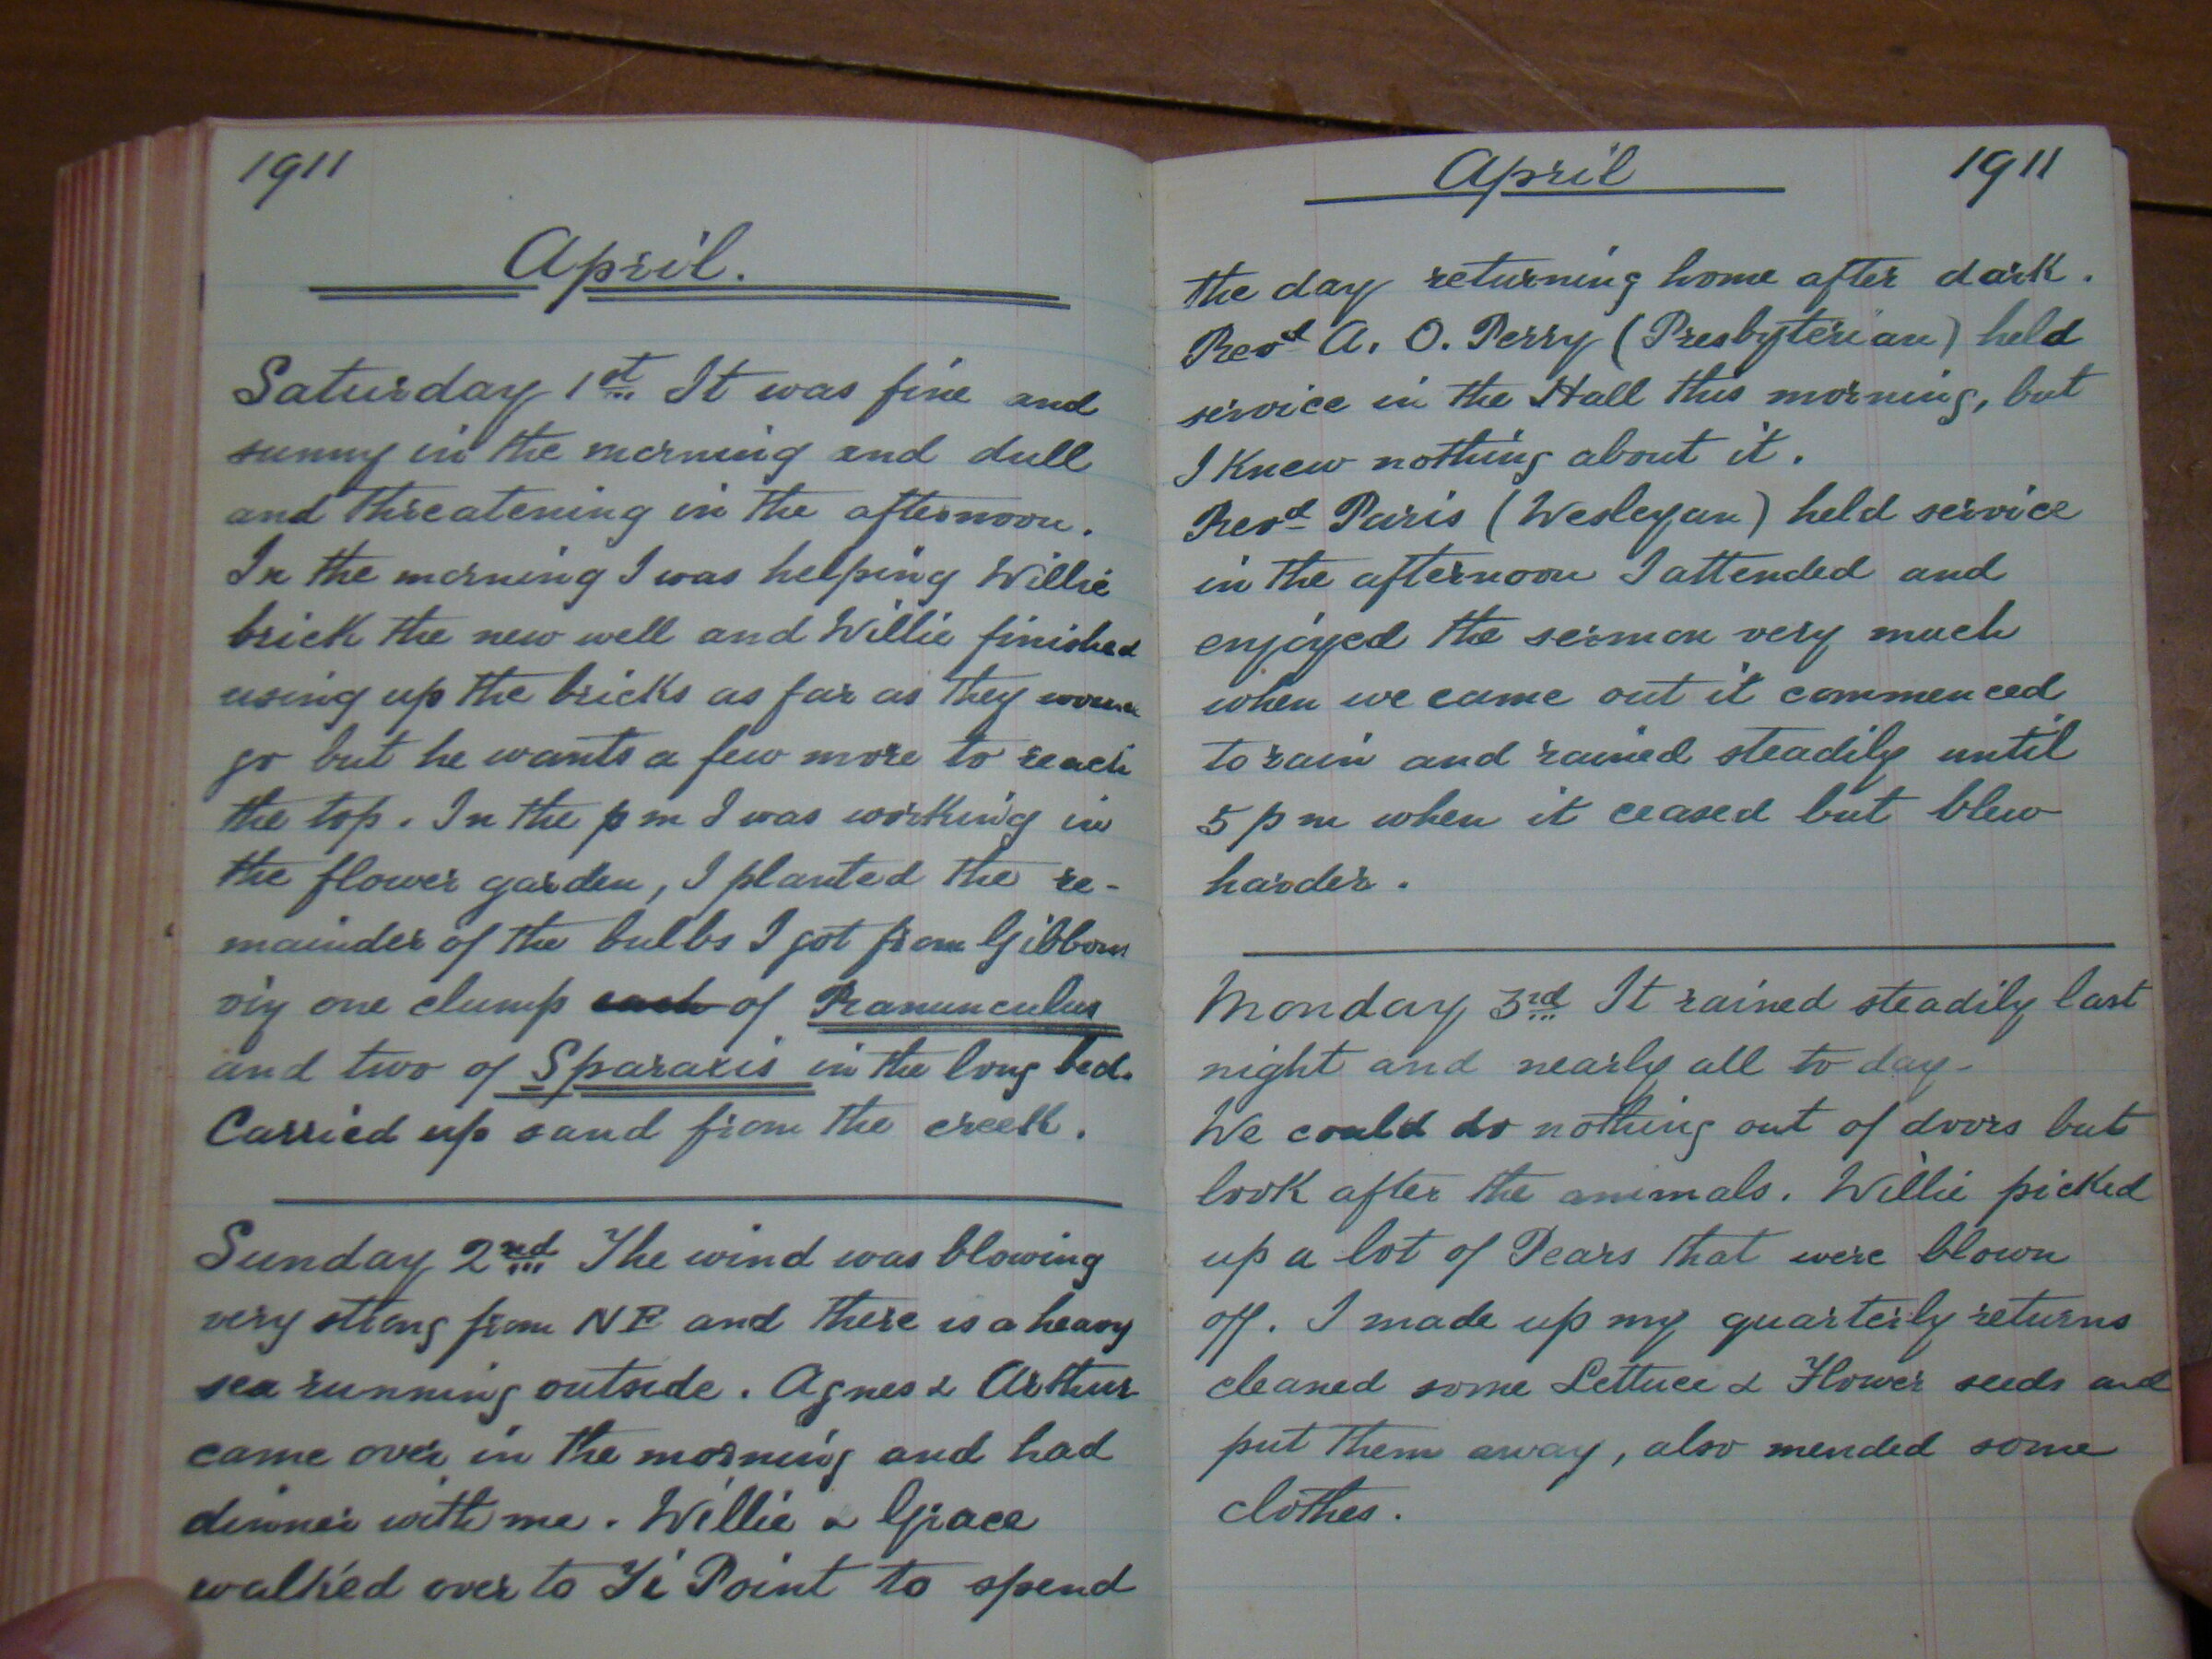 1911
April.
Saturday 1st It was fine and
sunny in the morning and dull
and threatening in the afternoon.
In the morning I was helping Willie
brick the new well and Willie finished
using up the bricks as far as they would
go but he wants a few more to reach
the top. In the p m I was working in
the flower garden, I planted the re-
mainder of the bulbs I got from Gibbons
viz one clump each of Ranunculus
and two of Sparaxis in the long bed.
Carried up sand from the creek.
Sunday 2nd The wind was blowing
very strong from NE and there is a heavy
sea running outside. Agnes & Arthur
came over in the morning and had
dinner with me. Willie & Grace
walked over to Ti Point to spend
April 1911
the day returning home after dark.
Revd A. O. Perry (Presbyterian) held
service in the Hall this morning, but
I knew nothing about it.
Revd Paris (Wesleyan) held service
in the afternoon I attended and
enjoyed the sermon very much
when we came out it commenced
to rain and rained steadily until
5 p m when it ceased but blew
harder.
Monday 3rd It rained steadily last
night and nearly all to day-
We could do nothing out of doors but
look after the animals. Willie picked
up a lot of Pears that were blown
off. I made up my quarterly returns
cleaned some Lettuce & Flower seeds and
put them away, also mended some
clothes.